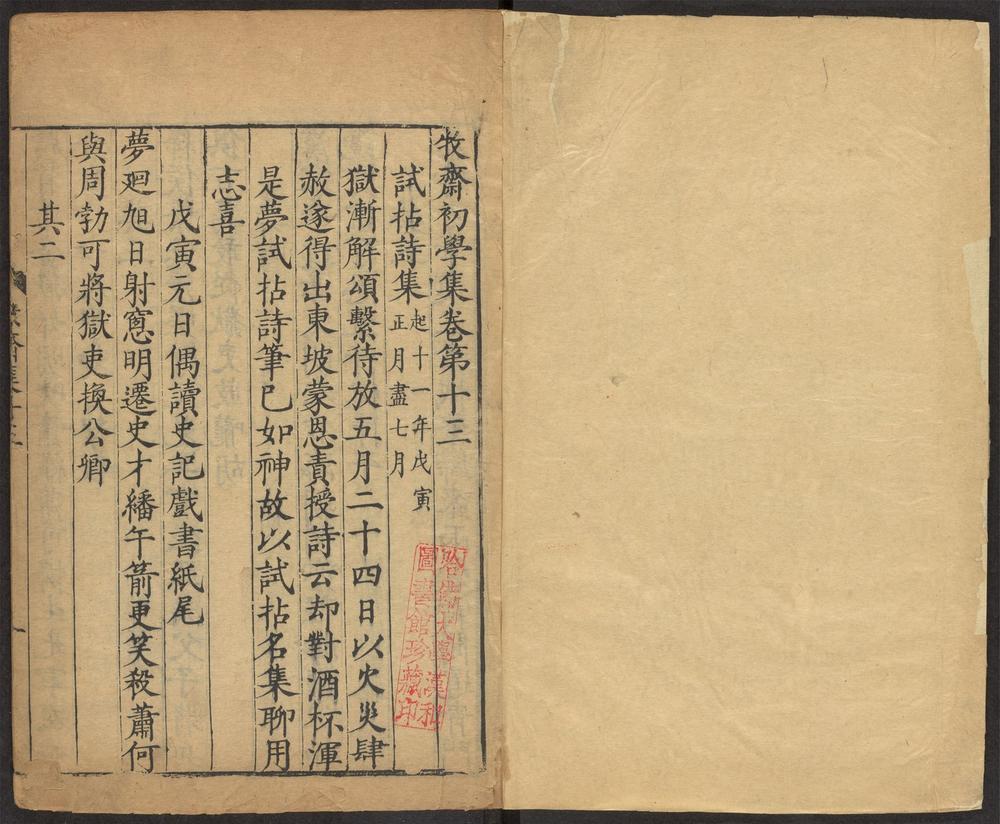 牧齋初學集卷第十三
試拈詩集 起十一年戊寅
正月盡七月
獄漸解頌繫待放五月二十四日以火災肆
赦遂得出東坡蒙恩責授詩云却對酒杯渾
是夢試拈詩筆已如神故以試拈名集聊用
志喜
戊寅元日偶讀史記戲書紙尾
夢廻旭日射窻明遷史才繙午箭更笑殺蕭何
與周勃可將獄吏換公卿
其二
哈佛大學漢和
圖書館珍藏印